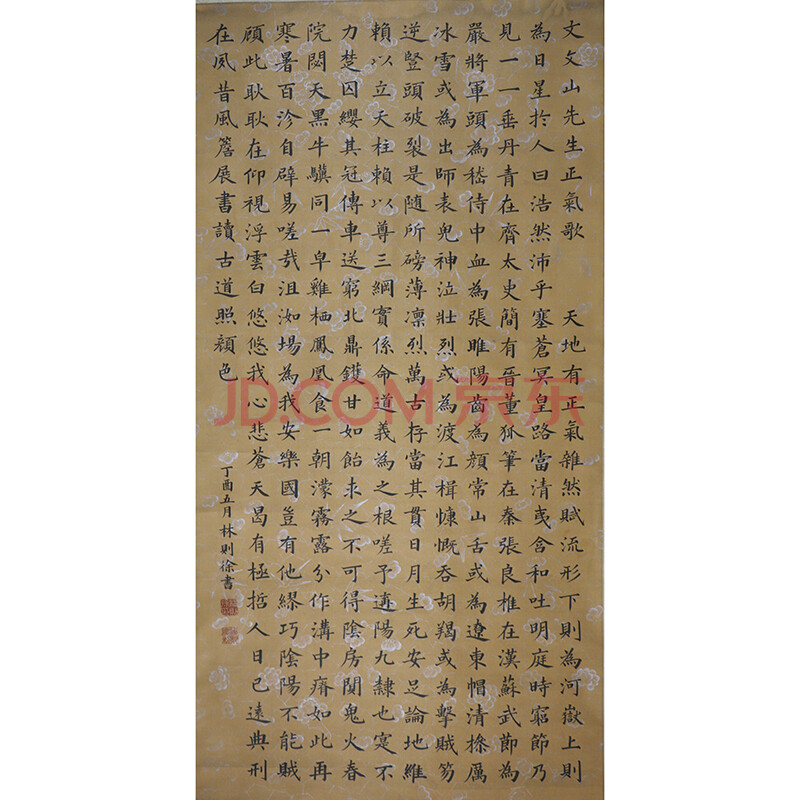 文文山先生正氣歌　天地有正氣雜然賦流形下則為河嶽上則
為日星於人曰浩然沛乎塞蒼冥皇路當清夷含和吐明庭時窮節乃
見一一垂丹青在齊太史簡有晉董狐筆在秦張良椎在漢蘇武節為
嚴將軍頭為嵇侍中血為張睢陽齒為顏常山舌或為遼東帽清操厲
冰雪或為出師表鬼神泣壯烈或為渡江楫慷慨吞胡羯或為擊賊笏
逆豎頭破裂是隨所磅薄凜烈萬古存當其貫日月生死安足論地維
賴以立天柱賴以尊三綱實係命道義為之根嗟予遘陽九隸也寔不
力楚囚纓其冠傳車送窮北鼎鑊甘如飴求之不可得陰房闃鬼火春
院閟天黑牛驥同一皁雞栖鳳凰食一朝濛霧露分作溝中瘠如此再
寒暑百沴自辟易嗟哉沮洳場為我安樂國豈有他繆巧陰陽不能賊
顧此耿耿在仰視浮雲白悠悠我心悲蒼天曷有極哲人日已遠典刑
在夙昔風簷展書讀古道照顏色
丁酉五月林則徐書
JD.COM 京东